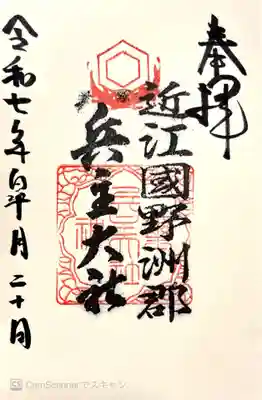 奉拝
近江國野洲郡
兵主大社
令和七年 月二十日
CamScannerでスキャン